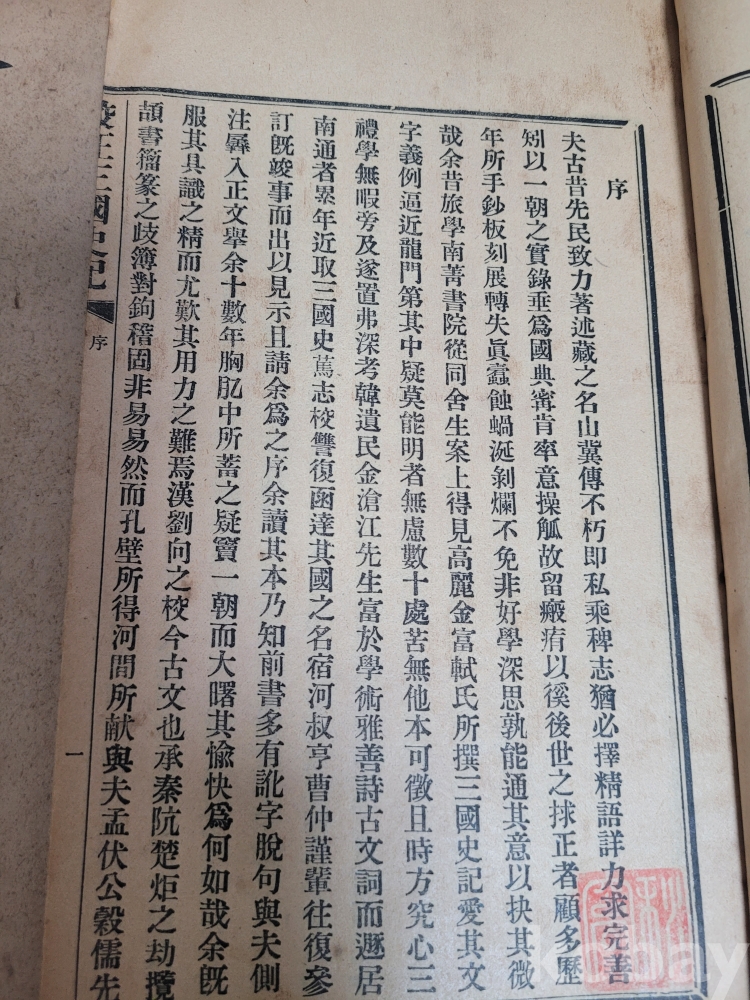 序
夫古昔先民致力著述藏之名山冀傳不朽卽私乘稗志猶必擇精語詳力求完善
矧以一朝之實錄垂爲國典寗肯率意操觚故留瘢痏以徯後世之捄正者顧多歷
年所手鈔板刻展轉失眞蠧蝕蝸涎剝爛不免非好學深思孰能通其意以抉其微
哉余昔旅學南菁書院從同舍生案上得見高麗金富軾氏所撰三國史記愛其文
字義例逼近龍門第其中疑莫能明者無慮數十處苦無他本可徵且時方究心三
禮學無暇旁及遂置弗深考韓遺民金滄江先生富於學術雅善詩古文詞而遯居
南通者累年近取三國史篤志校讐復函達其國之名宿河叔亨曹仲謹輩往復參
訂旣竣事而出以見示且請余爲之序余讀其本乃知前書多有訛字脫句與夫側
注羼入正文舉余十數年胸肊中所蓄之疑竇一朝而大曙其愉快爲何如哉余旣
服其具識之精而尤歎其用力之難焉漢劉向之校今古文也承秦阬楚炬之劫攬
頡書籒篆之歧簿對鉤稽固非易易然而孔壁所得河間所献與夫孟伏公穀儒先
校正三國史記
序
一
kobay